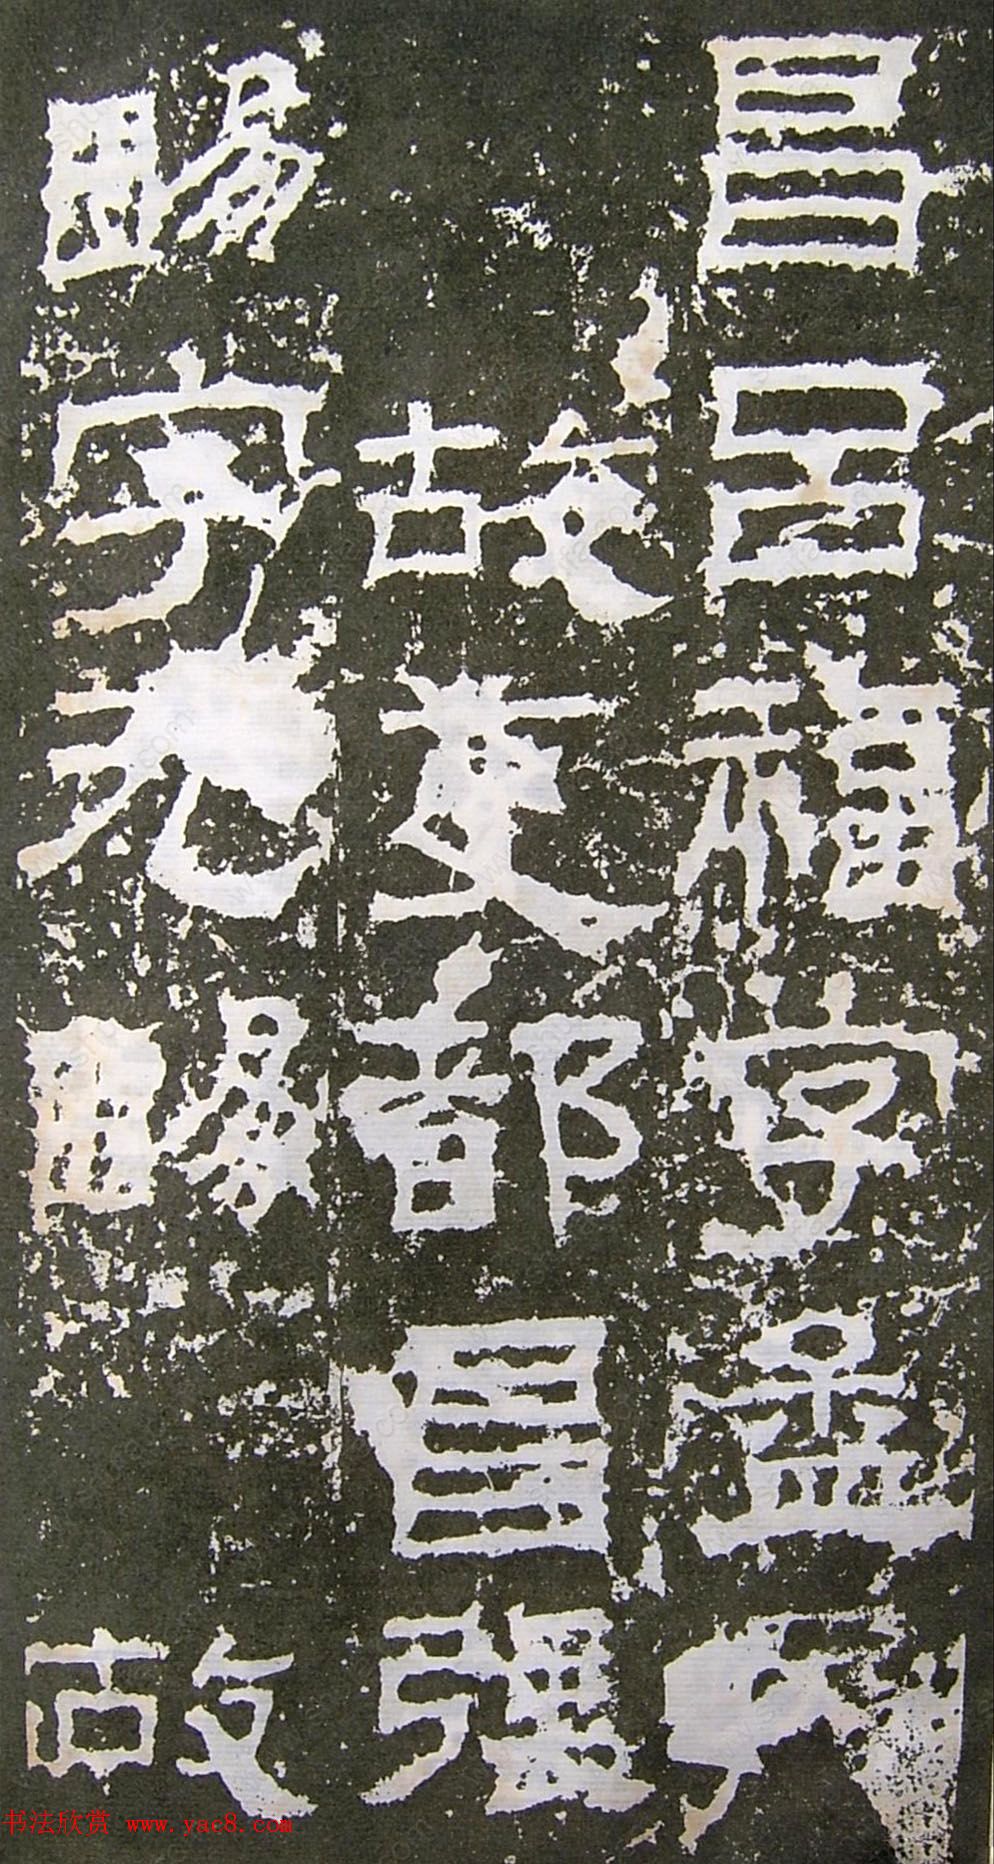 昌吕福字孟
故吏都昌
賜字元賜
故
书法欣赏 www.yac8.com